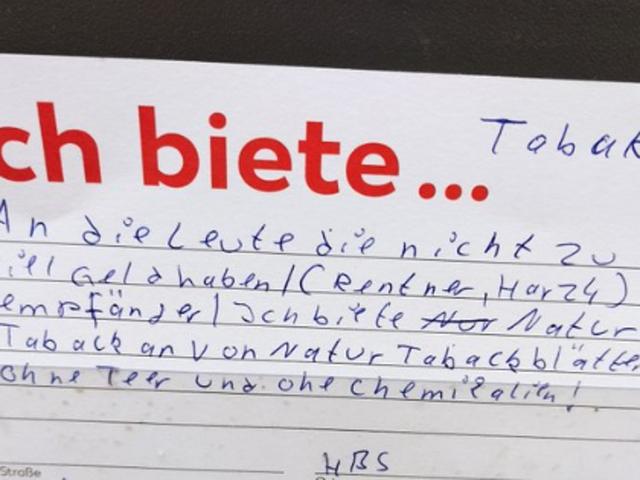 ch biete... Tabak
An die Leute die nicht zu
iel Geld haben/(Rentner, Harz4)
empfänder/ Ich biete Nur Natur
Taback an von Natur Tabackblätte
ohne Teer und ohe chemikalien!
HBS
Straße